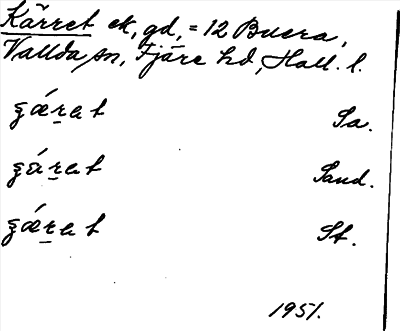 Kärret ek, gd, = 12 Buera,
Vallda sn, Fjäre hd, Hall. l.
ʂǽr̲ət Sa.
ʂár̲ət Sand.
ʂǽr̲ət St.
1951.